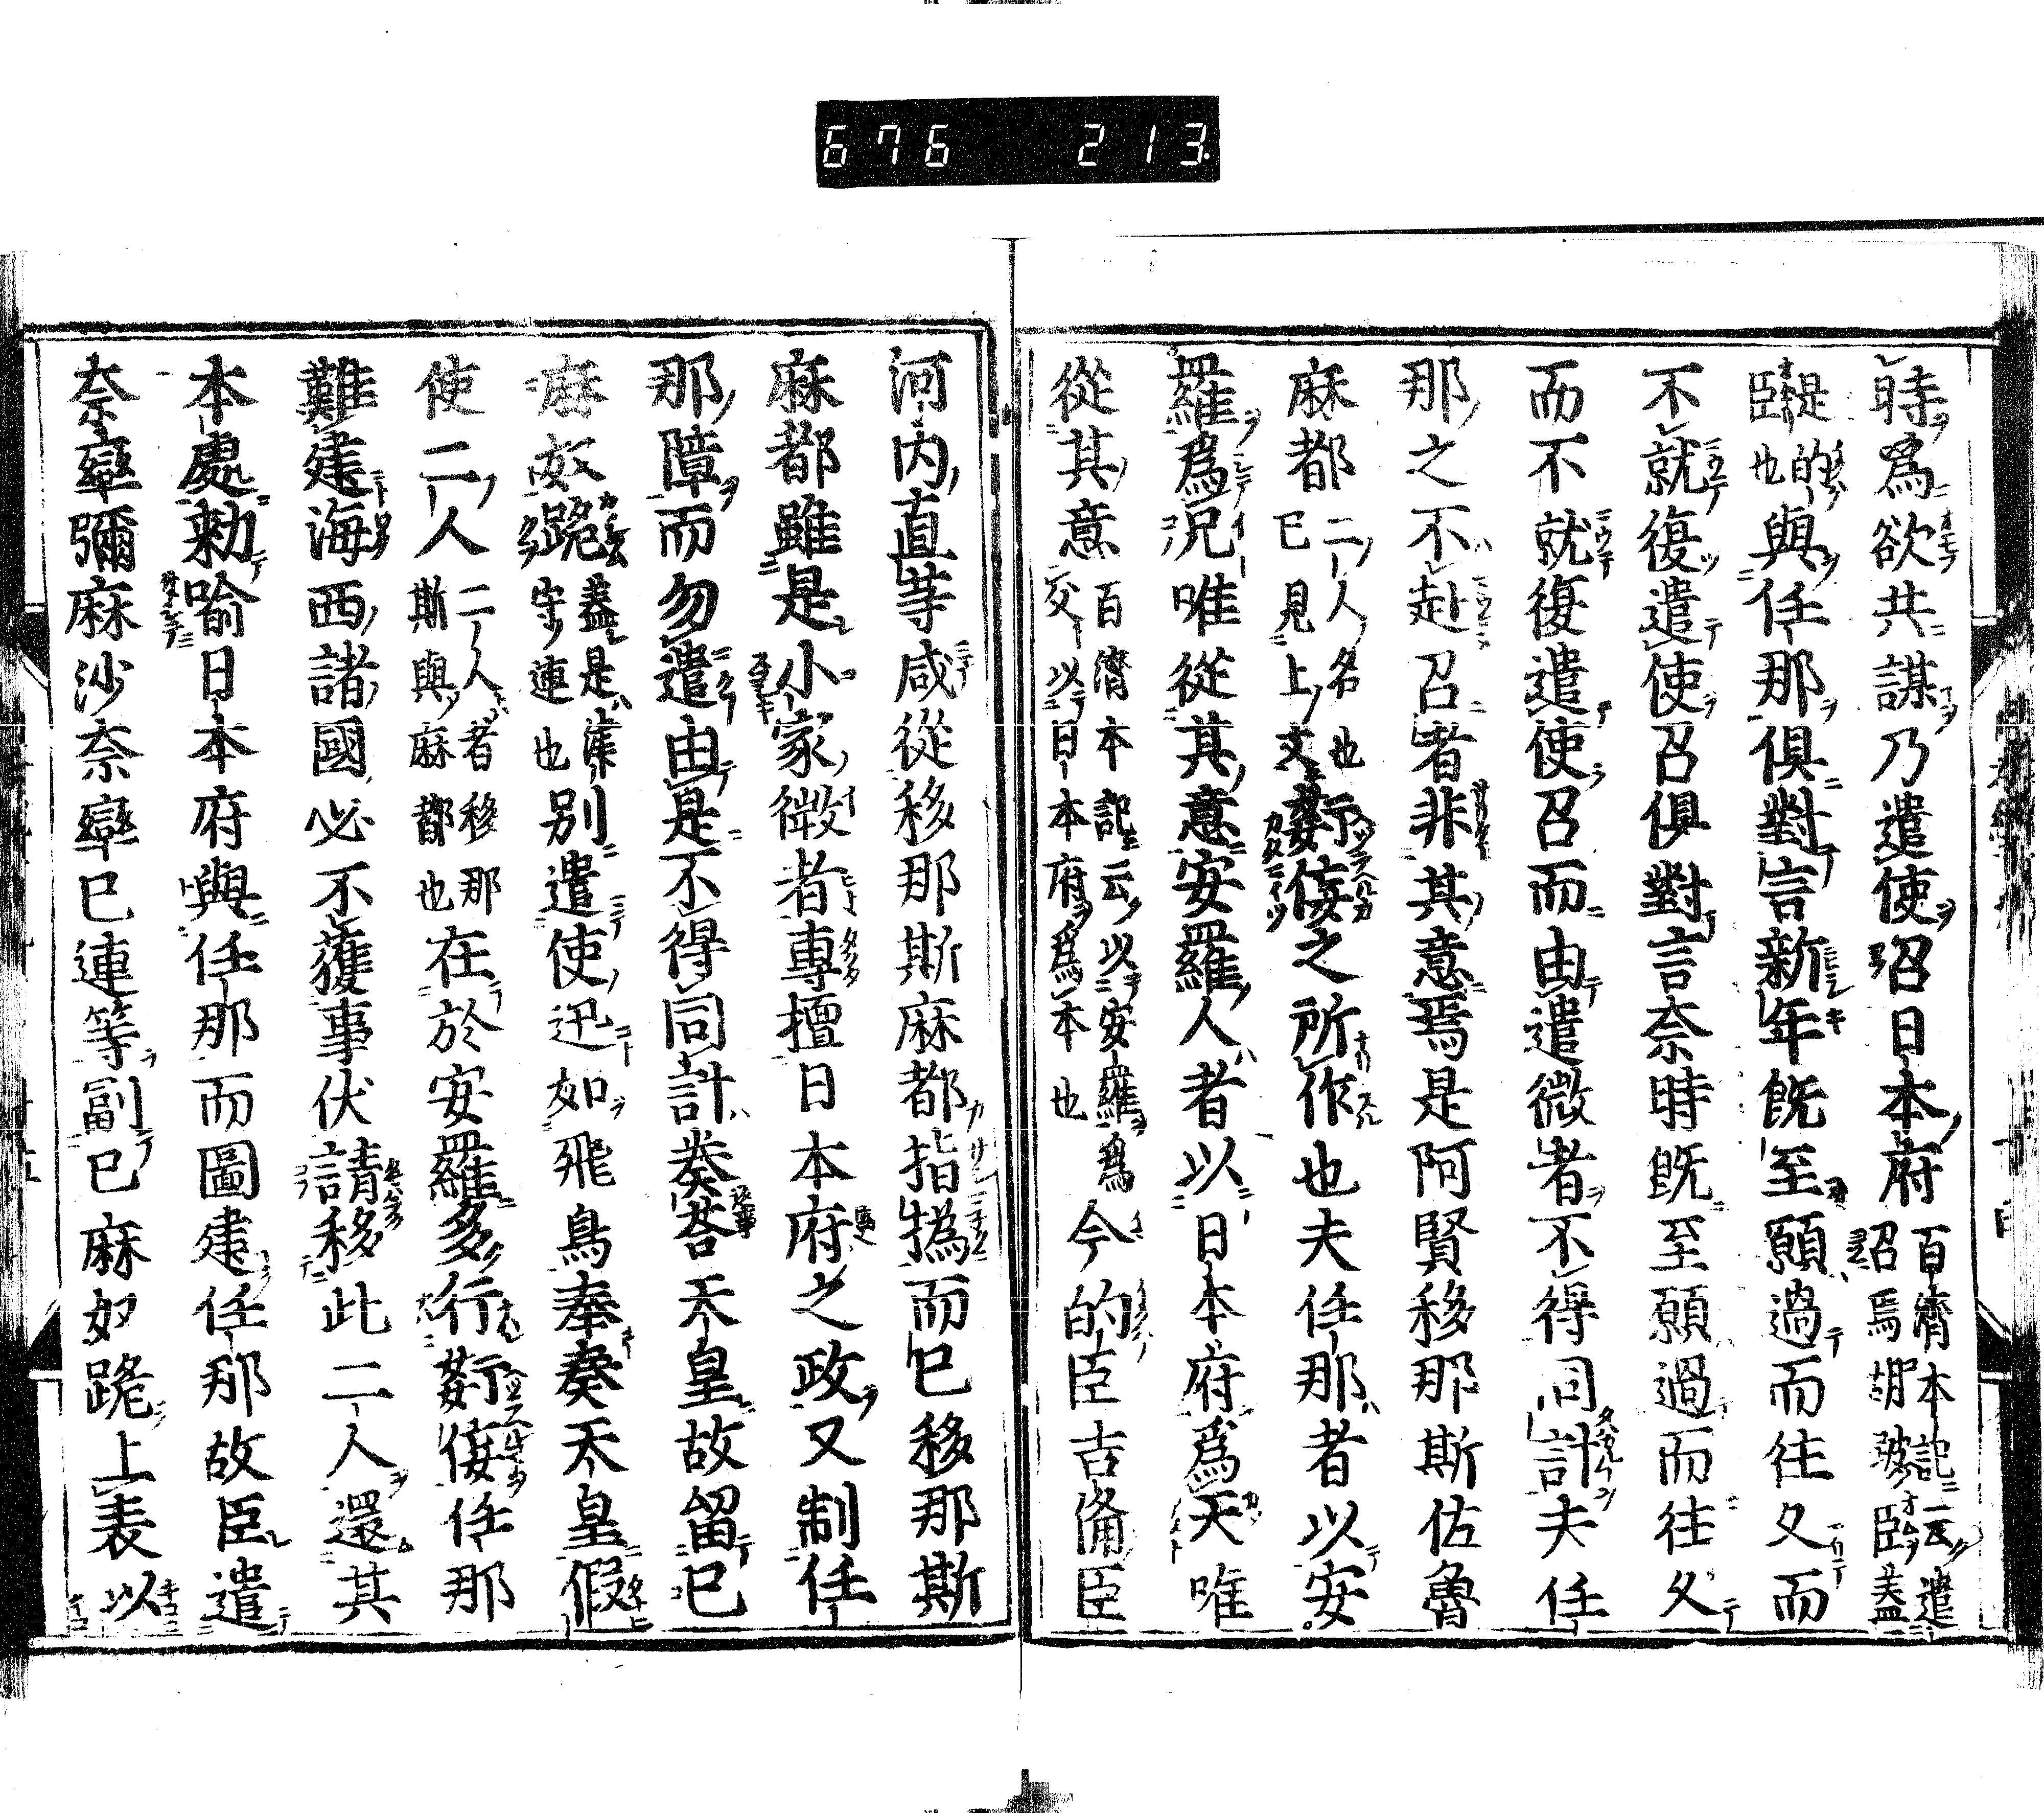 676 213.
時爲欲共謀乃遣使召日本府百濟本記云遣召烏胡跛臣蓋
是的臣也與任那俱對言新年既至願過而往久而
不就復遣使召俱對言奈時既至願過而往久
而不就復遣使召而由遣微者不得同計夫任
那之不赴召者非其意焉是阿賢移那斯佐魯
麻都二人名也已見上文姧佞之所作也夫任那者以安
羅爲况唯從其意安羅人者以日本府爲天唯
從其意百濟本記云以安羅爲父以日本府爲本也今的臣吉備臣
河内直等咸從移那斯麻都指撝而已移那斯
麻都雖是小家微者專擅日本府之政又制任
那障而勿遣由是不得同計奏荅天皇故留已
麻奴跪蓋是津守連也別遣使迅如飛鳥奉奏天皇假
使二人二人者移那斯與麻都也在於安羅多行姧佞任那
難建海西諸國必不獲事伏請移此二人還其
本處勅喻日本府與任那而圖建任那故臣遣
奈率彌麻沙奈率已連等副已麻奴跪上表以